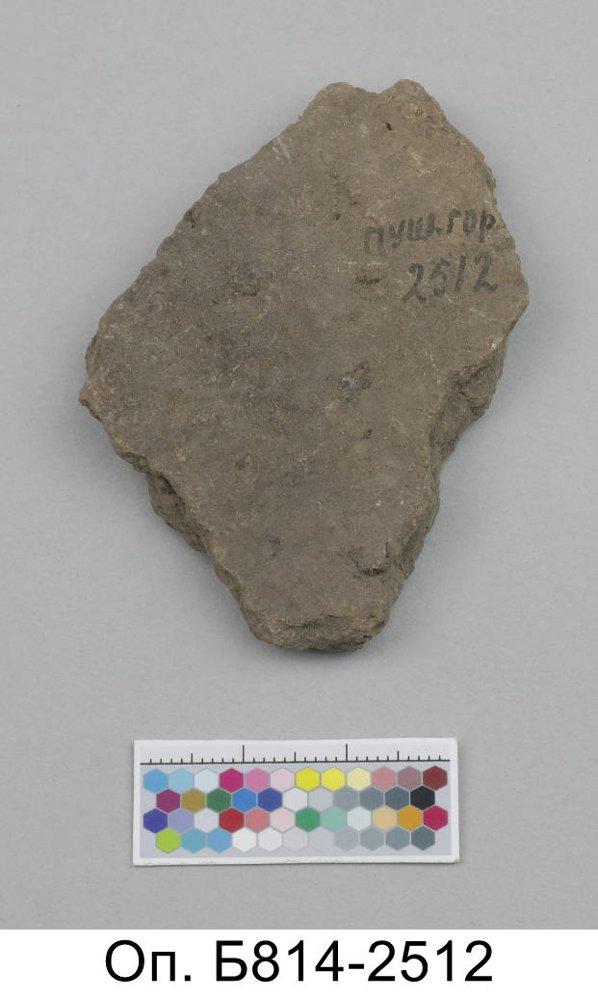 пуш.гор
2512
Оп. Б814-2512